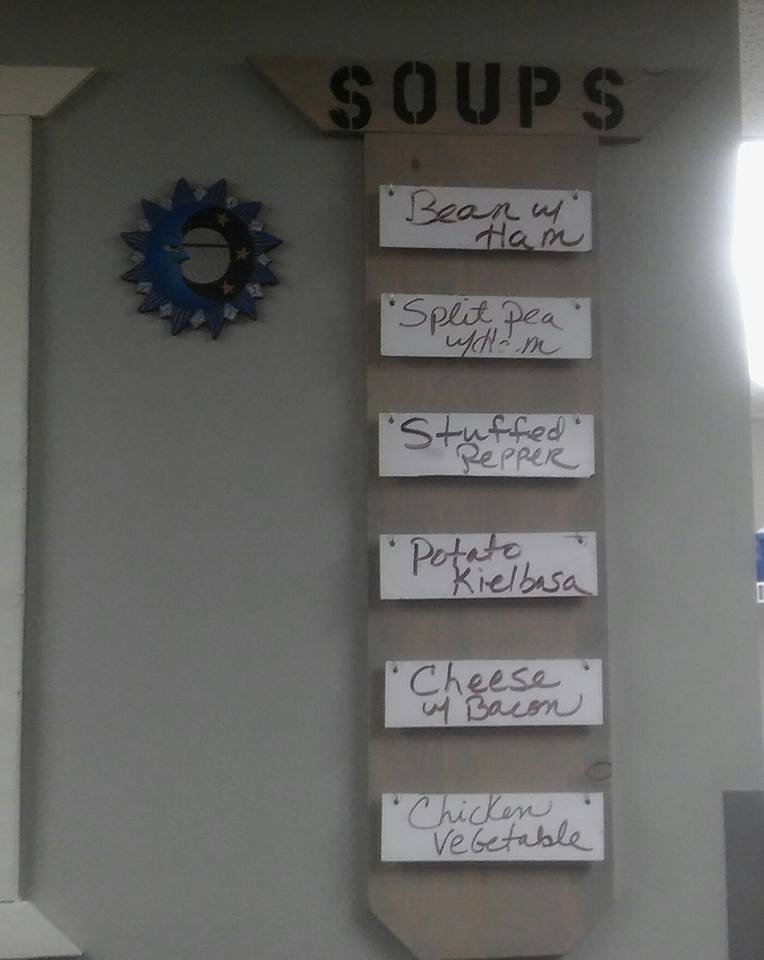 SOUPS
Bean w/
Ham
Split Pea
w/Ham
Stuffed
Pepper
Potato
Kielbasa
Cheese
w/ Bacon
Chicken
Vegetable